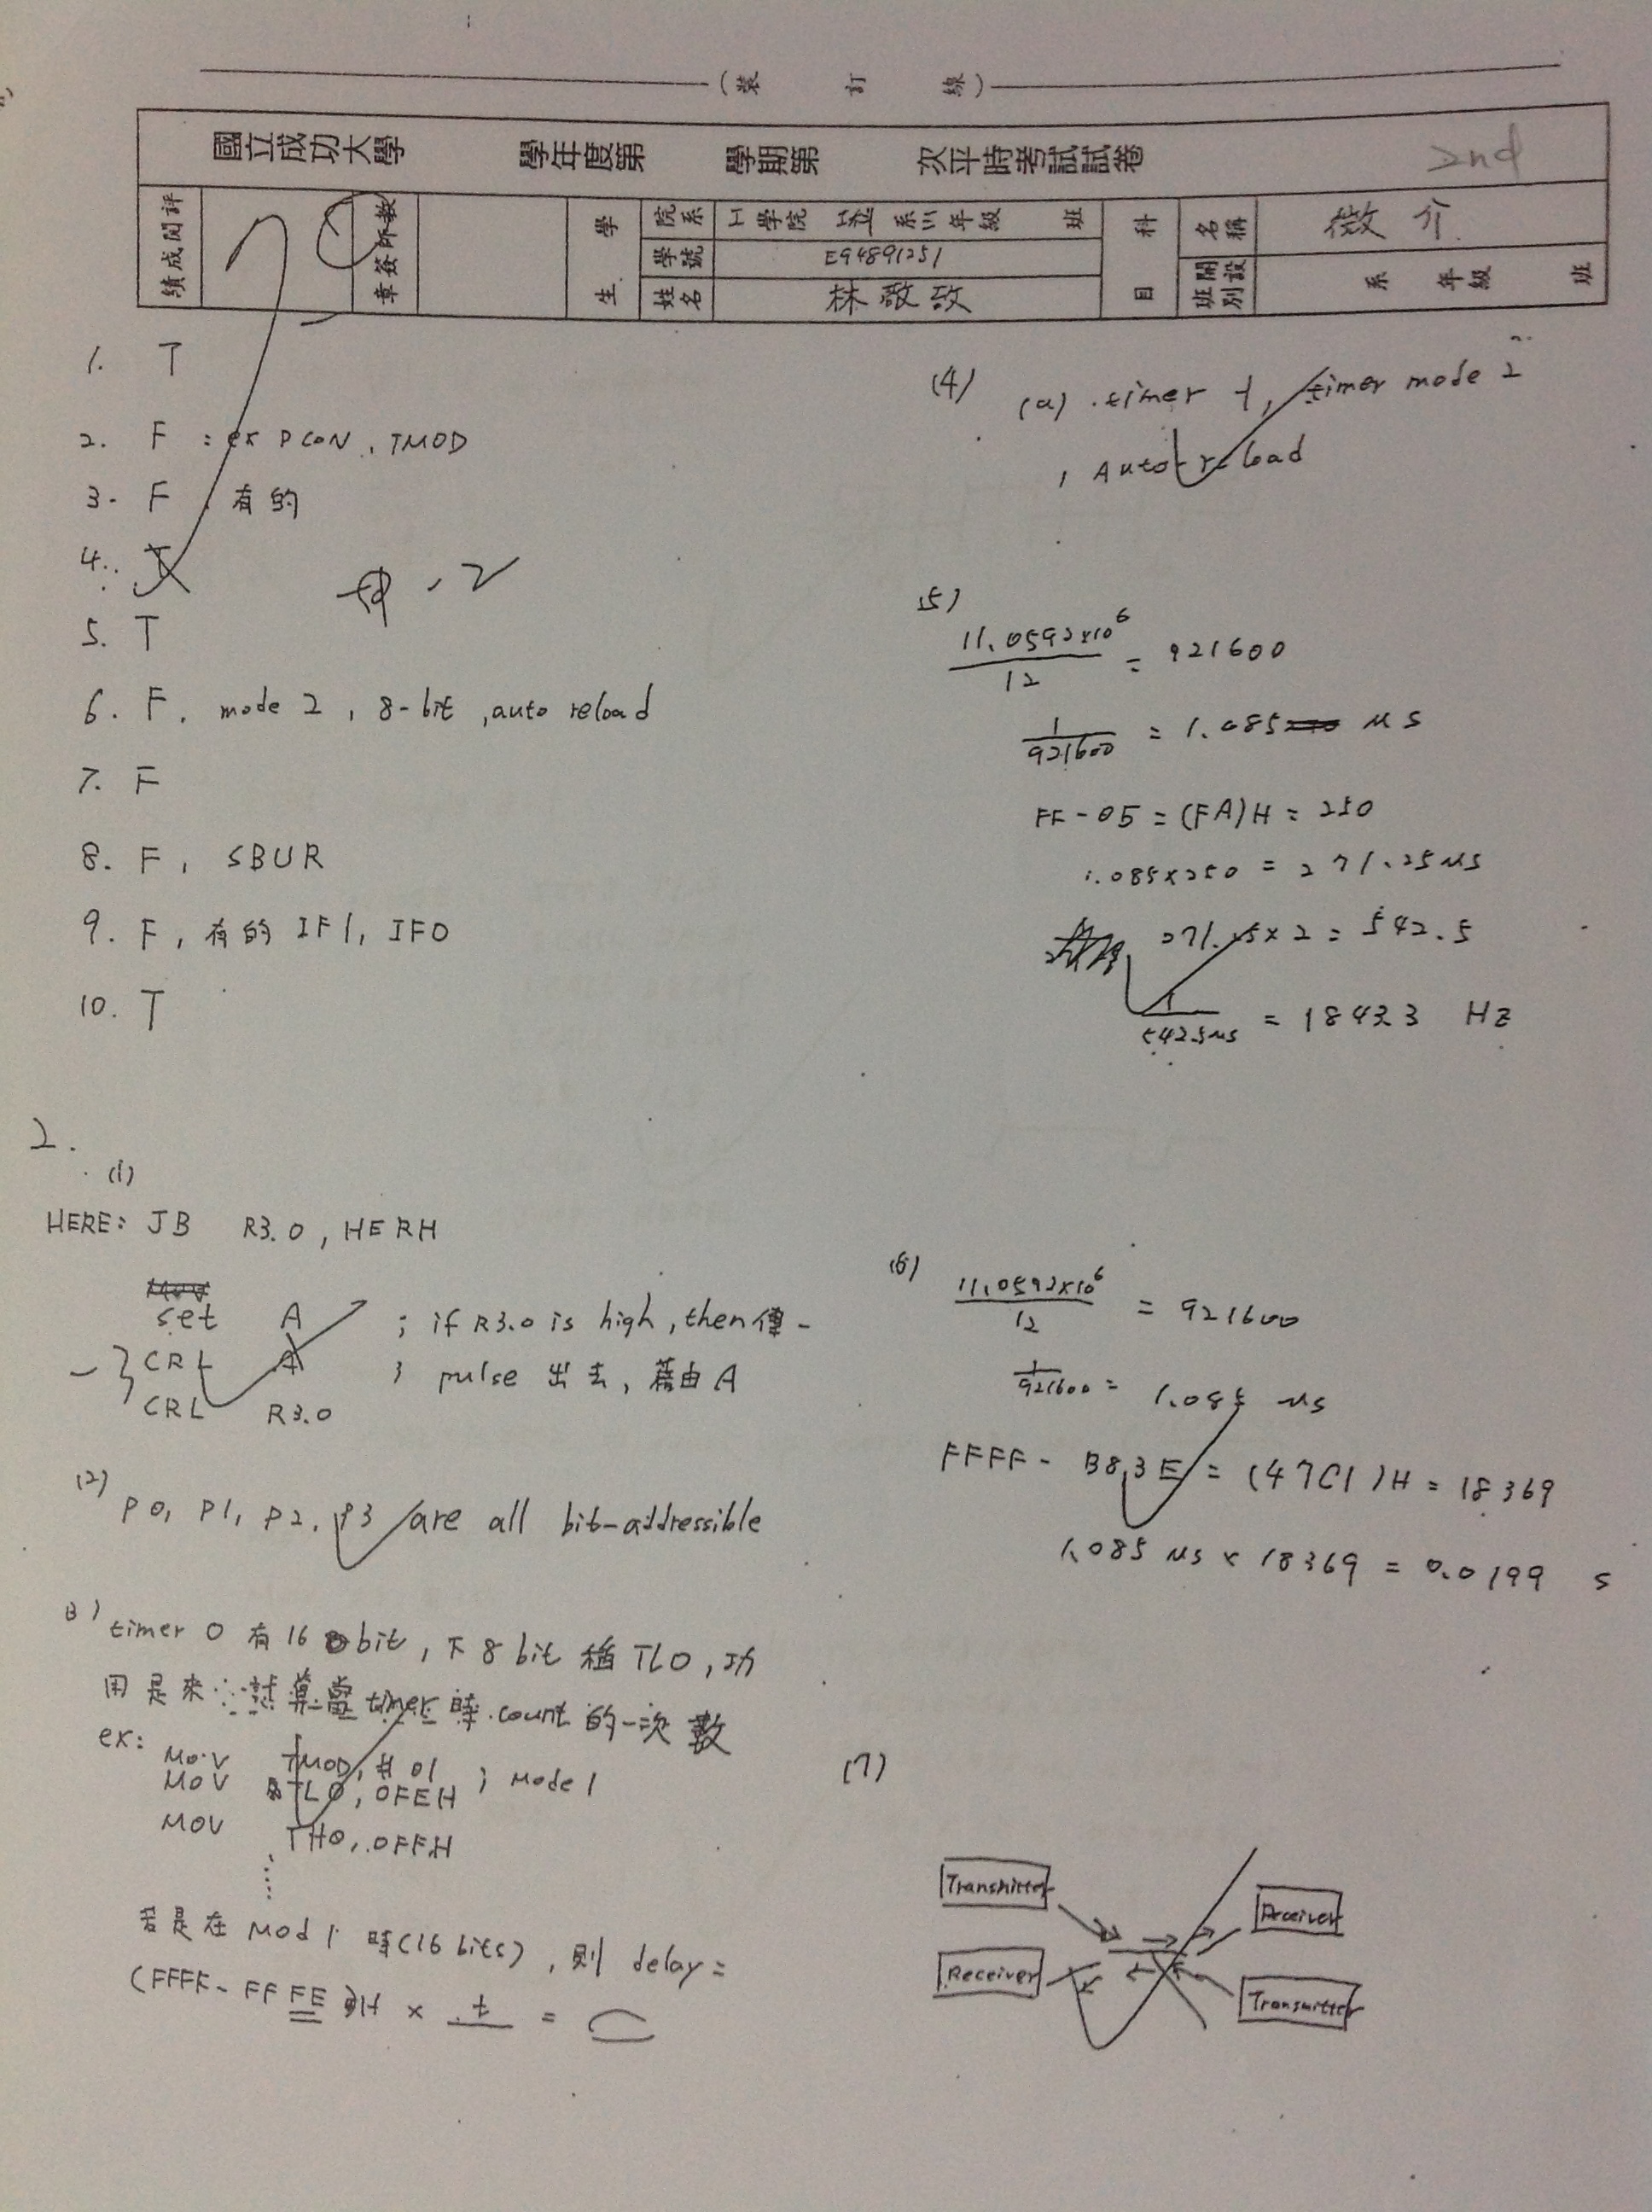 (裝 訂 線)
國立成功大學 學年度第 學期第 次平時考試試卷 2nd
績成閱評
章簽所教
學生
院系 工學院 系三年級 班
學號 E94891251
姓名 林敬
科目
名稱 微介
班別開設 系 年級 班
1. T
2. F : ex PCON, TMOD
3. F , 有的
4.
5. T
6. F, mode 2, 8-bit, auto reload
7. F
8. F, SBUR
9. F, 有的 IF1, IF0
10. T
2.
(1)
HERE: JB R3.0, HERH
set A ; if R3.0 is high, then 傳一
CRL A ; pulse 出去, 藉由 A
CRL R3.0
(2) P0, P1, P2, P3 are all bit-addressible
(3) timer 0 有 16 bit, 下 8 bit 稱 TL0, 功
用是來計算當 timer 時 count 的一次數
ex:
MOV TMOD, #01 ; Mode 1
MOV TL0, 0FEH
MOV THO, 0FFH
若是在 Mod 1 時(16 bits), 則 delay =
(FFFF - FFFE)H × t =
(4) (a) timer 1, timer mode 2
, Auto-reload
(5)
11.0592×10⁶ / 12 = 921600
1 / 921600 = 1.085 μs
FF - 05 = (FA)H = 250
1.085×250 = 271.25μs
271.25×2 = 542.5
1 / 542.5μs = 1843.3 HZ
(6) 11.0592×10⁶ / 12 = 921600
1 / 921600 = 1.085 μs
FFFF - B83E = (47C1)H = 18369
1.085 μs × 18369 = 0.0199 s
(7)
Transmitter
Receiver
Receiver
Transmitter